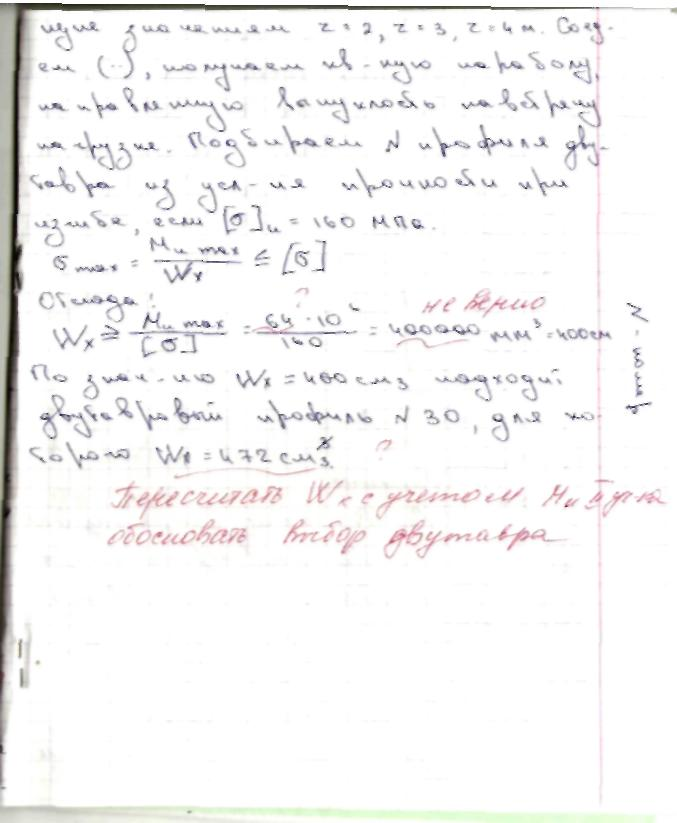 щие значениям z = 2, z = 3, z = 4 м. Соед-
ем (··), получаем кв-ную параболу,
направленную выпуклость навстречу
нагрузке. Подбираем N профиля дву-
тавра из усл-ия прочности при
изгибе, если [σ]и = 160 МПа.
σmax = Mи max / Wx ≤ [σ]
Отсюда: ? не верно
Wx ≥ Mи max / [σ] = 64·10⁶ / 160 = 400000 мм³ = 400см
По знач-ию Wx = 400 см3 подходит
двутавровый профиль N 30, для ко-
торого Wx = 472 см3. ?
Пересчитать Wx с учетом Mи II уч-ка
обосновать выбор двутавра